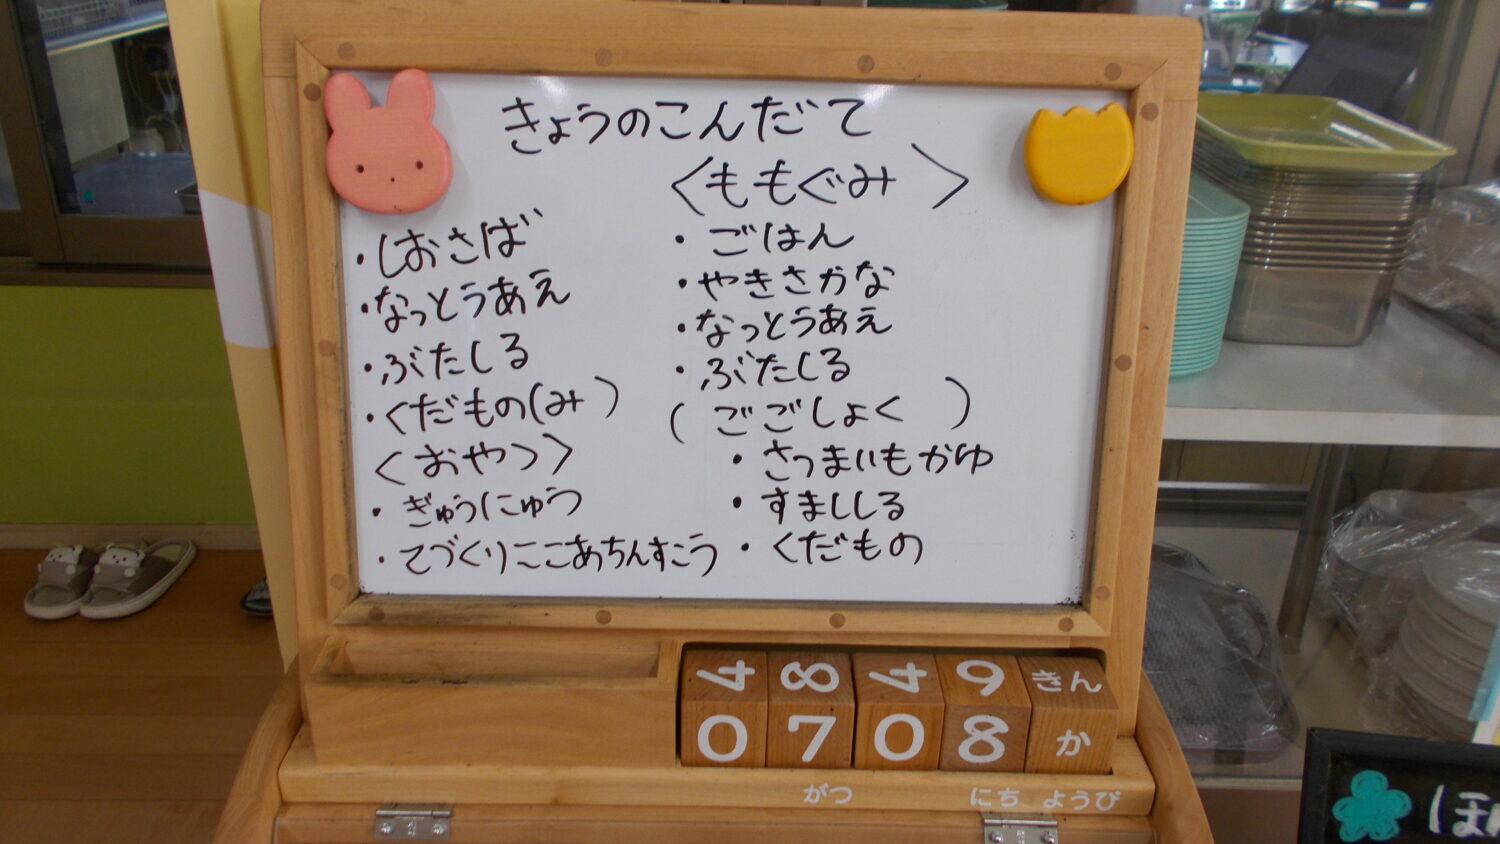 きょうのこんだて
・しおさば
・なっとうあえ
・ぶたしる
・くだもの(み)
<おやつ>
・ぎゅうにゅう
・てづくりここあちんすこう
<ももぐみ>
・ごはん
・やきさかな
・なっとうあえ
・ぶたしる
(ごごしょく)
・さつまいもかゆ
・すまししる
・くだもの
4 8 4 9 きん
0 7 0 8 か
がつ にち ようび